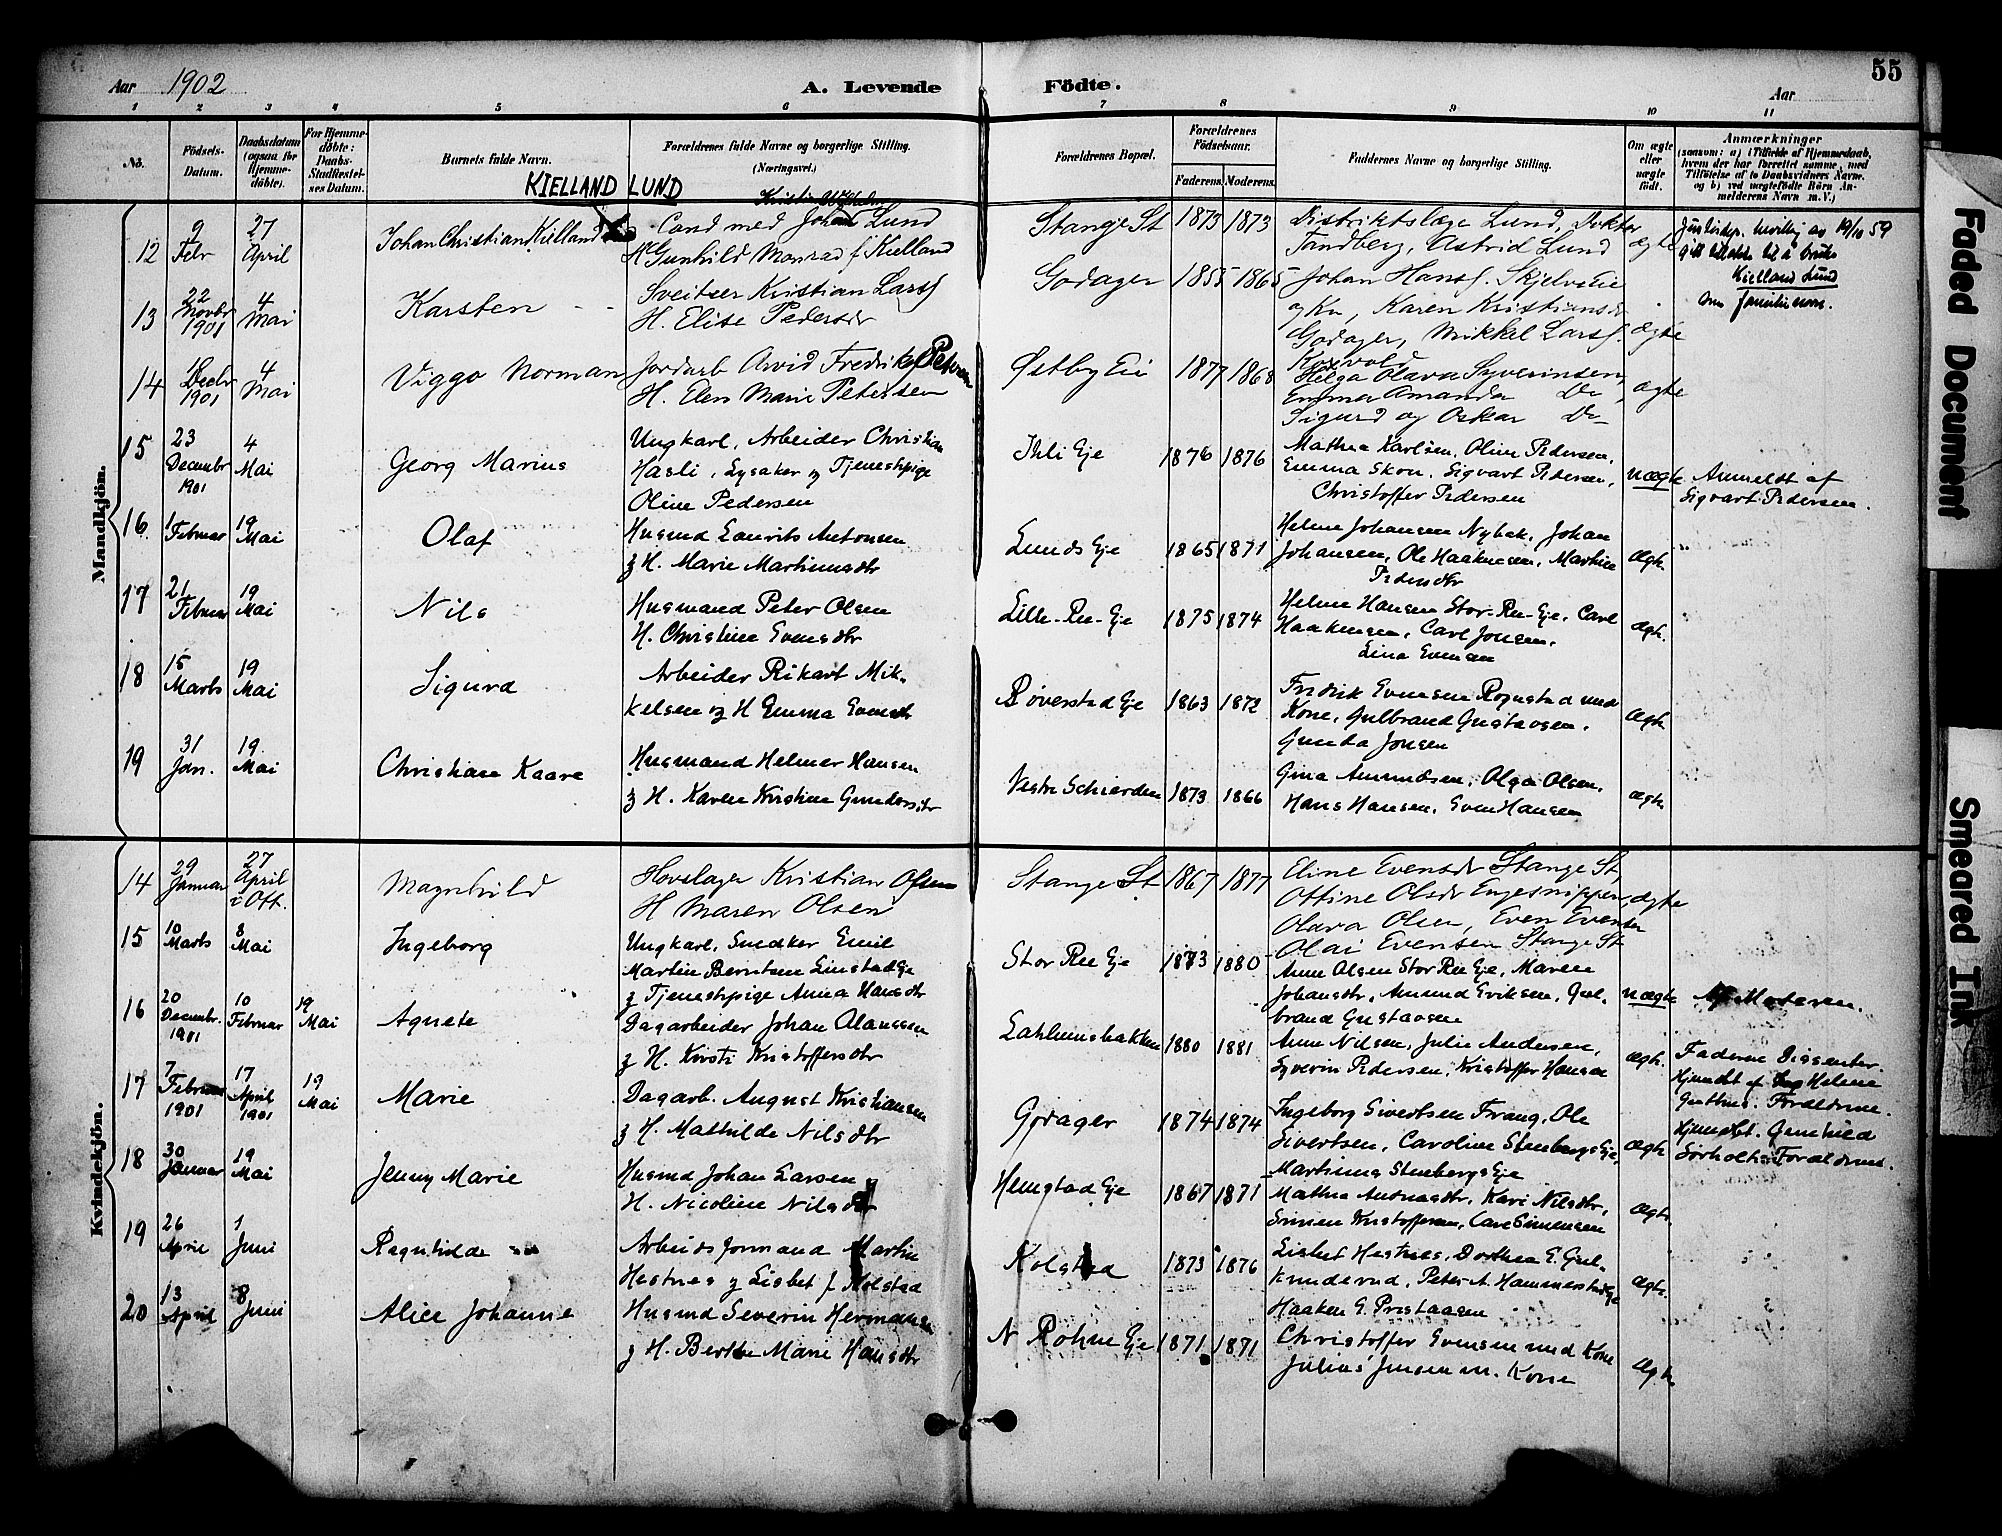 Aar 1902
A. Levende Födte.
Aar
55
1 2 3 4 5 6 7 8 9 10 11
No.
Födsels-Datum.
Daabsdatum (ogsaa for Hjemmedöbte).
For Hjemmedöbte: Daabs-Stadfæstelses Datum.
Barnets fulde Navn.
Forældrenes fulde Navne og borgerlige Stilling. (Næringsvei.)
Forældrenes Bopæl.
Forældrenes Födselsaar.
Faderens. Moderens.
Faddernes Navne og borgerlige Stilling.
Om ægte eller uægte födt.
Anmærkninger
(saasom: a) i Tilfælde af Hjemmedaab, hvem der har forrettet samme, med Tilföielse af to Daabsvidners Navne. og b) ved uægtefödte Börn Anmelderens Navn m. V.)
KIELLAND LUND
Mandkjön.
12 9 Febr 27 April Johan Christian Kielland
Cand med Johan Lund
H Gunhild Monrad f Kielland
Stange St 1873 1873
Distriktslæge Lund, Doktor
Tandberg, Astrid Lund
ægte
19/10 59
Kielland Lund
som familienavn.
13 22 Novbr 1901 4 Mai Karsten
Sveitser Kristian Larss
H. Elise Pedersdr
Godager 1855 1865
Johan Hanss. Skjelveie
og Kn, Karen Kristiansdr
Godager, Mikkel Larss.
ægte
14 Decbr 1901 4 Mai Viggo Norman
Jordarb Arvid Fredriks Petersen
H. Elen Marie Petersen
Østby Eie 1877 1868
Helga Olava Syverinsen,
Emma Amanda Do
Sigurd og Oskar Do
ægte
15 23 Decembr 1901 4 Mai Georg Marius
Ungkarl, Arbeider Christian
Hasli, Lysaker og Tjenestpige
Oline Pedersen
Ihli Eje 1876 1876
Mathea Karlsen, Oline Pedersen,
Emma Skou, Sigvart Pedersen,
Christoffer Pedersen
uægte
Anmeldt af
Sigvart Pedersen.
16 1 Februar 19 Mai Olaf
Husmd Laurits Antonsen
og H. Marie Martinusdtr
Lunds Eje 1865 1871
Helene Johansen Nybak, Johan
Johansen, Ole Haakensen, Martine
Pedersdtr
Ægte.
17 21 Februar 19 Mai Nils
Husmand Peter Olsen
H. Christine Evensdtr
Lille-Ree-Eje 1875 1874
Helene Hansen Stor-Ree-Eje, Carl
Haakensen, Carl Jonsen,
Lina Evensen
Ægte.
18 15 Marts 19 Mai Sigurd
Arbeider Rikart Mik-
kelsen og H Emma Evensdtr
Røverstad Eje 1863 1872
Fredrik Evensen Rognstad med
Kone, Gulbrand Gustavsen,
Gunda Jonsen
Ægte
19 31 Jan. 19 Mai Christian Kaare
Husmand Helmer Hansen
og H. Karen Kristine Gundersdtr
Vestre Schierden 1873 1866
Gina Amundsen, Olga Olsen,
Hans Hansen, Even Hansen
Ægte
Kvindekjön.
14 29 Januar 27 April i Ott. Magnhild
Hovslager Kristian Olsen
H Maren Olsen
Stange St 1867 1877
Eline Evensdr Stange St
Ottine Olsdr Engesnippen,
Olava Olsen, Even Evensen
Olai Evensen Stange St
ægte
15 10 Marts 8 Mai Ingeborg
Ungkarl, Snedker Emil
Martin Berntsen Linstad Eje
og Tjenestpige Anna Hansdtr
Stor Ree Eje 1873 1880
Anne Olsen Stor Ree Eje, Maren
Johansdtr, Amund Eriksen, Gul-
brand Gustavsen
uægte
Af Moderen.
16 20 Decembr. 1901 10 Februar 19 Mai Agnete
Dagarbeider Johan Olaussen
og H. Kirsti Kristoffersdtr
Lahlumsbakken 1880 1881
Anne Nilsen, Julie Andersen,
Syverin Pedersen, Kristoffer Hansen
Ægte.
Faderen Dissenter
Hjemdbt af Helene
Forældrene.
17 7 Februar 1901 17 April 1901 19 Mai Marie
Dagarb. August Kristiansen
og H. Mathilde Nilsdtr
Godager 1874 1874
Ingeborg Sivertsen Frang, Ole
Sivertsen, Caroline Stenbergs Eje,
Martinus Stenbergs Eje
Ægte
Hjemdbt. Gunhild
Sørholt. Forældrene.
18 30 Januar 19 Mai Jenny Marie
Husmd Johan Larsen
H. Nicoline Nilsdtr
Hemstad Eje 1867 1871
Mathea Andreasdtr, Kari Nilsdtr,
Simen Kristoffersen, Carl Simensen
Ægte.
19 26 April 1 Juni Ragnhilde
Arbeidsformand Martin
Hestnes og Lisbet f Kolstad
Kolstad 1873 1876
Lisbet Hestnes, Dorthea E. Gul-
knuderud, Peter A. Hammerstad Eje
Haaken G. Prestaasen
Ægte.
20 13 April 8 Juni Alice Johanne
Husmd Severin Hermansen
og H. Berthe Marie Hansdtr
N Rohne Eje 1871 1871
Christoffer Evensen med Kone
Julius Jensen m. Kone
Ægte.
Faded Document
Smeared Ink